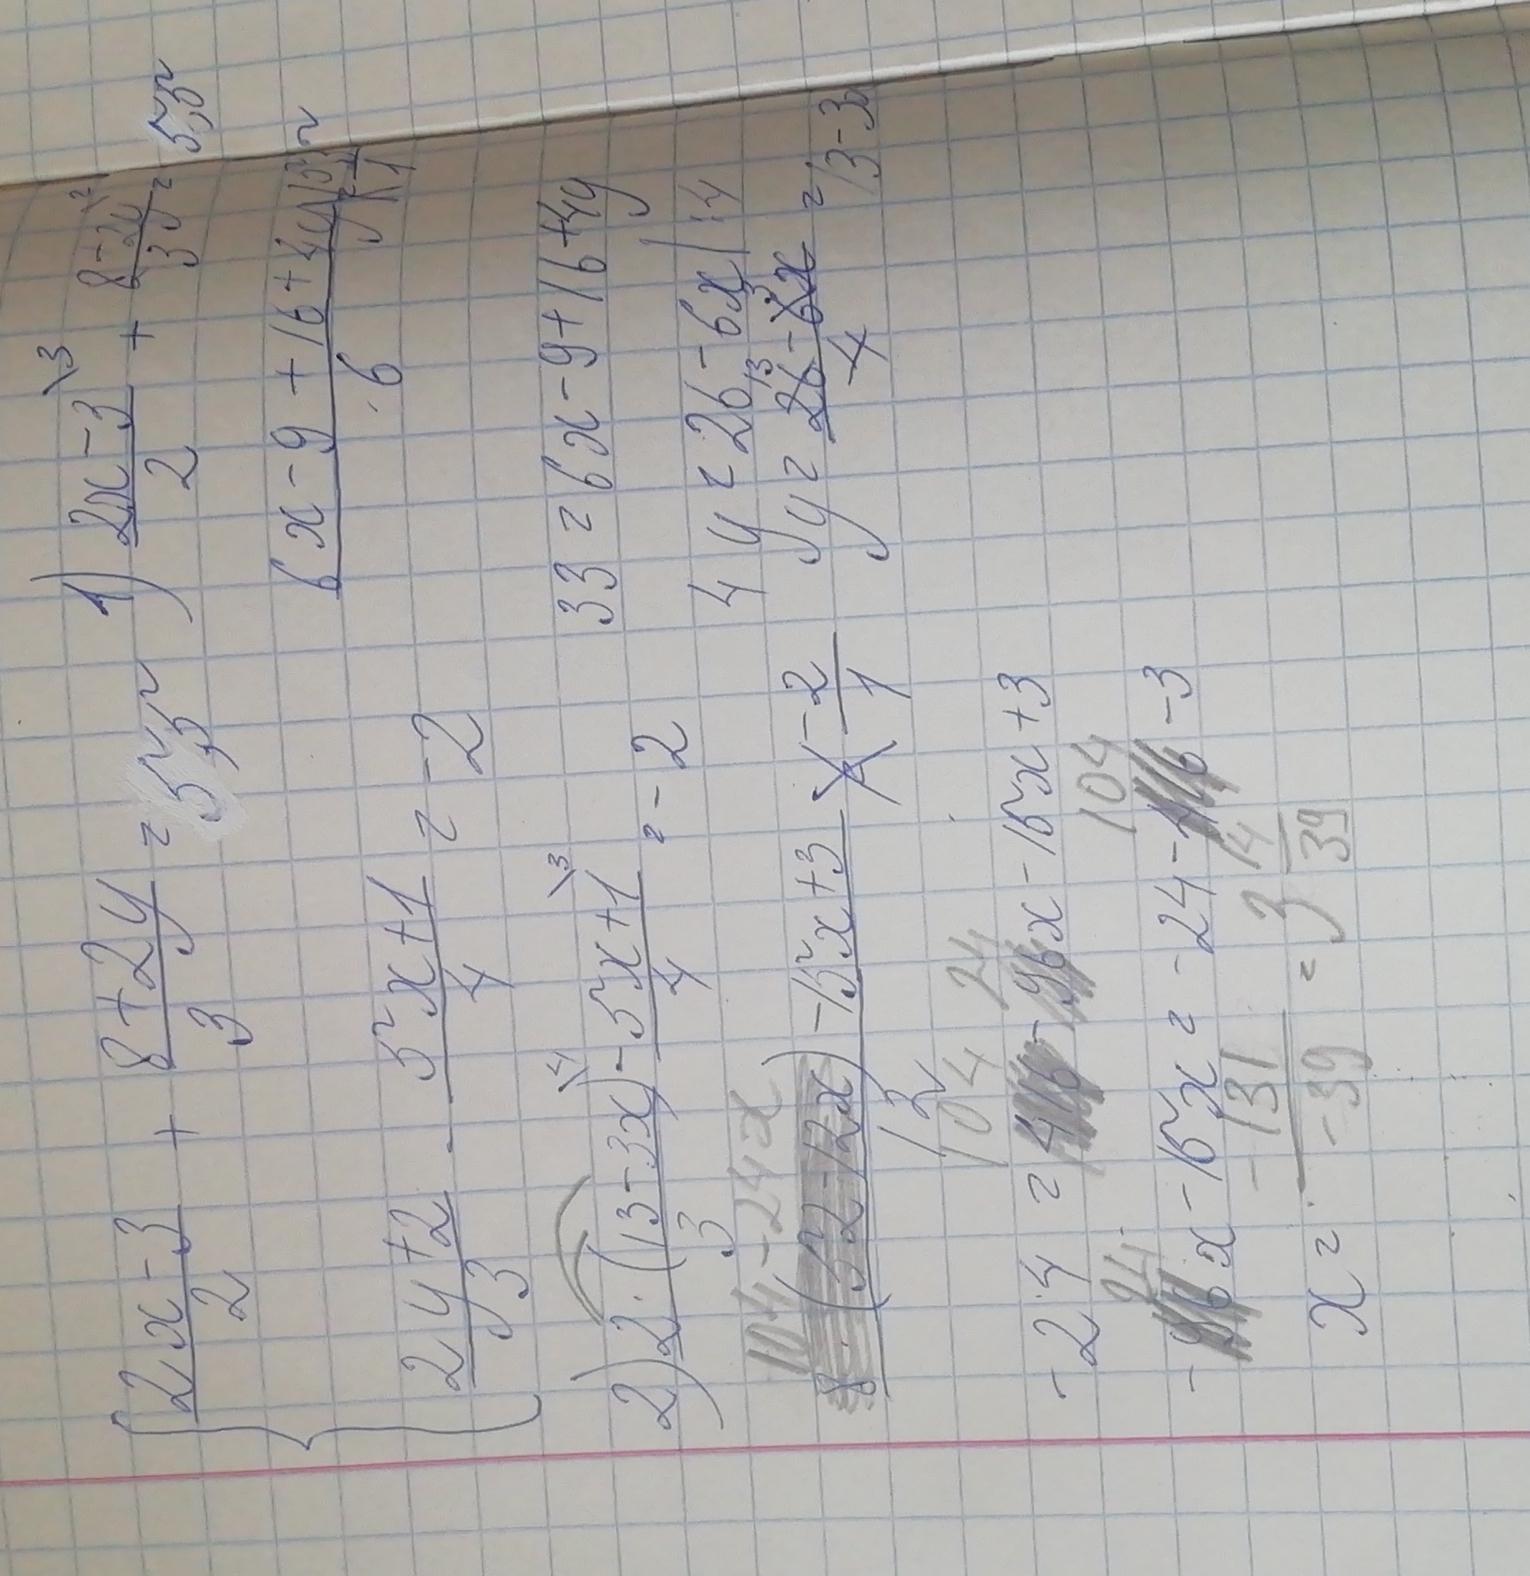 (2x-3)/2 + (8+2y)/3 = 5,5
(2y+2)/3 - (5x+1)/4 = -2
1) (2x-3)/2 \3 + (8+2y)/3 \2 = 5,5
(6x-9+16+4y)/6
33 = 6x-9+16+4y
4y = 26-6x |:4
y = (26-6x)/4 = 13-3
2) (2·(13-3x))/3 \4 - (5x+1)/4 \3 = -2
104-24x
(8·(52-12x) - 15x+3)/12 = -2/1
104 24
-24 = x-15x+3
24 104
- x-15x = -24- -3
x = -131/-39 = 3 14/39